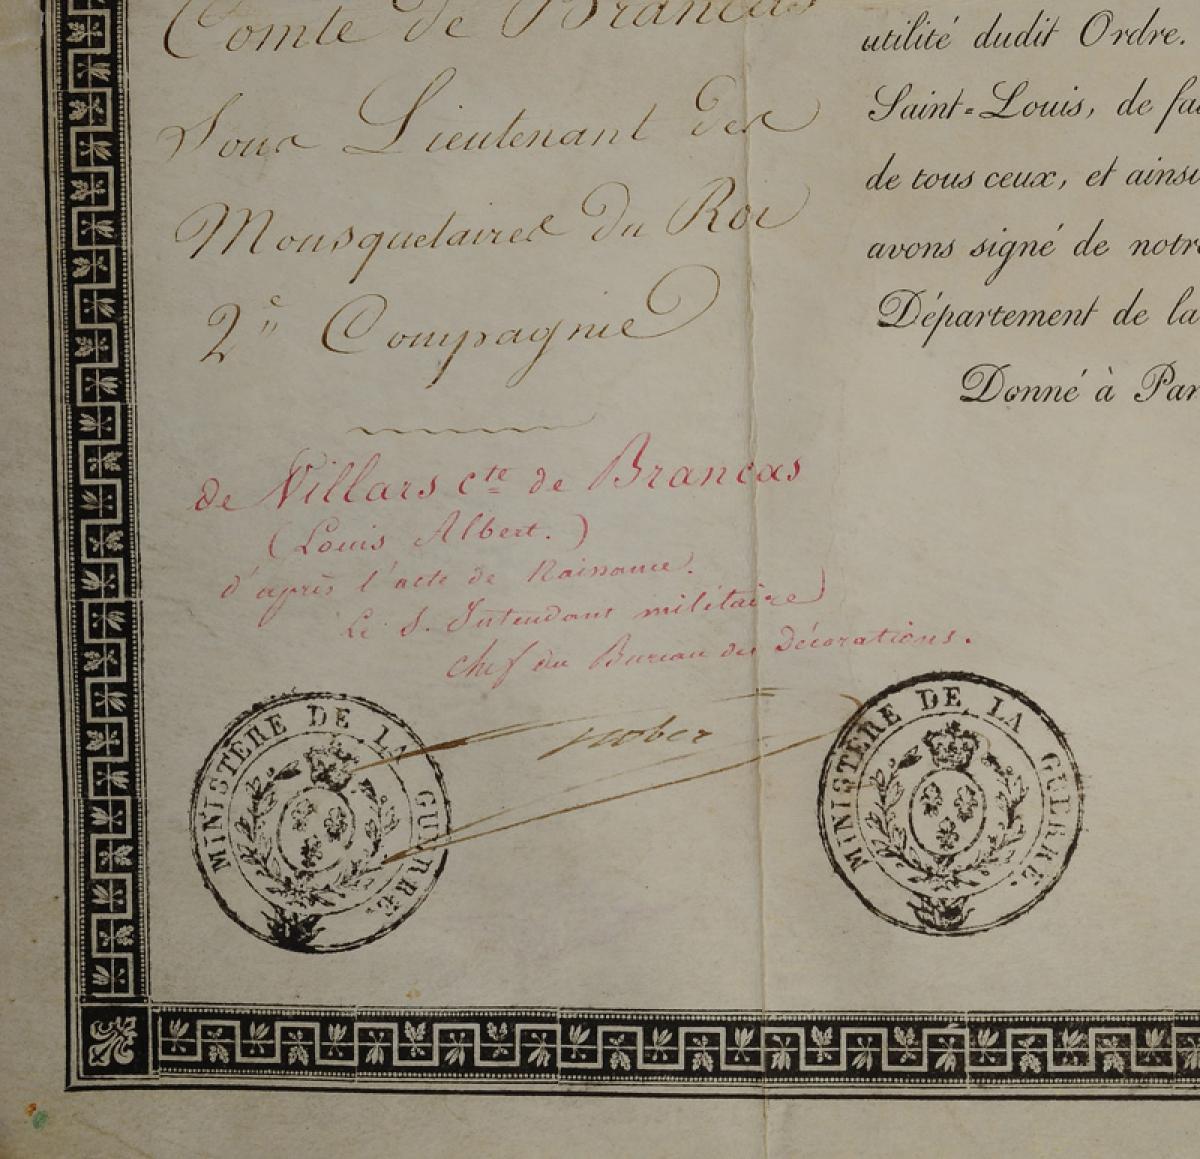 Comte de Brancas
Sous Lieutenant des
Mousquetaires du Roi
2e Compagnie
de Villars cte de Brancas
(Louis Albert.)
d'après l'acte de Naissance.
Le S. Intendant militaire
chef du Bureau des Décorations.
utilité dudit Ordre.
Saint-Louis, de fa
de tous ceux, et ainsi
avons signé de notre
Département de la
Donné à Par
MINISTÈRE DE LA GUERRE.
MINISTÈRE DE LA GUERRE.